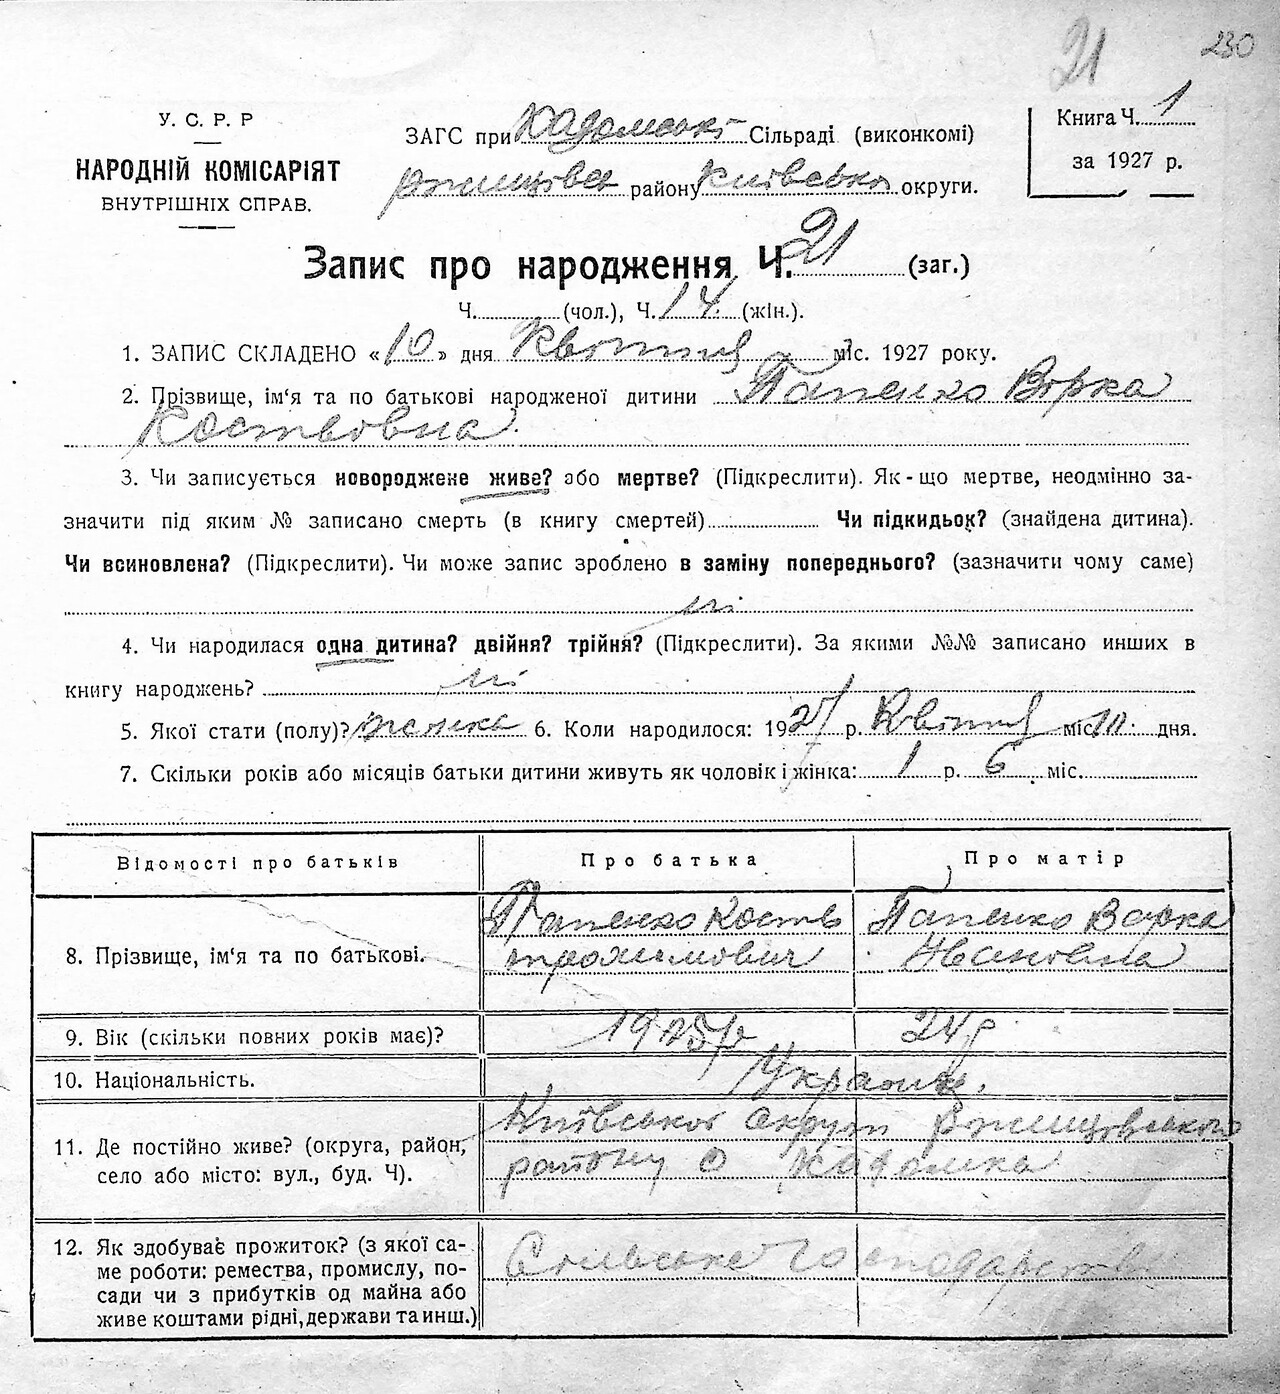 21 230
У. С. Р. Р
НАРОДНІЙ КОМІСАРІЯТ
ВНУТРІШНІХ СПРАВ.
ЗАГС при Кадомські Сільраді (виконкомі)
району Київської округи.
Книга Ч. 1
за 1927 р.
Запис про народження Ч. 21 (заг.)
Ч. (чол.), Ч. 14 (жін.).
1. ЗАПИС СКЛАДЕНО «10» дня Квітня міс. 1927 року.
2. Прізвище, ім'я та по батькові народженої дитини Папенко Вірка
Костьовна
3. Чи записується новороджене живе? або мертве? (Підкреслити). Як-що мертве, неодмінно за-
значити під яким № записано смерть (в книгу смертей) Чи підкидьок? (знайдена дитина).
Чи всиновлена? (Підкреслити). Чи може запис зроблено в заміну попереднього? (зазначити чому саме)
ні
4. Чи народилася одна дитина? двійня? трійня? (Підкреслити). За якими №№ записано инших в
книгу народжень? ні
5. Якої стати (полу)? 6. Коли народилося: 1927 р. Квітня міс. 10 дня.
7. Скільки років або місяців батьки дитини живуть як чоловік і жінка: 1 р. 6 міс.
Відомості про батьків Про батька Про матір
8. Прізвище, ім'я та по батькові. Папенко Кость Папенко Варка
трохимович Ивановна
9. Вік (скільки повних років має)? 24р
10. Національність. Україн.
11. Де постійно живе? (округа, район, Київської округи Ржищівського
село або місто: вул., буд. Ч). району с Кадомка
12. Як здобуває прожиток? (з якої са-
ме роботи: ремества, промислу, по-
сади чи з прибутків од майна або
живе коштами рідні, держави та инш.)
Сільське господарство